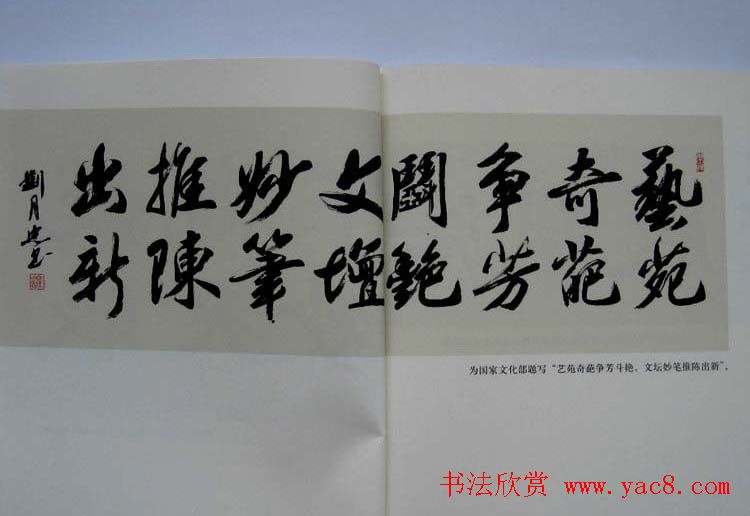 藝苑
奇葩
争芳
鬪艶
文壇
妙筆
推陳
出新
劉月
为国家文化部题写“艺苑奇葩争芳斗艳、文坛妙笔推陈出新”。
书法欣赏 www.yac8.com